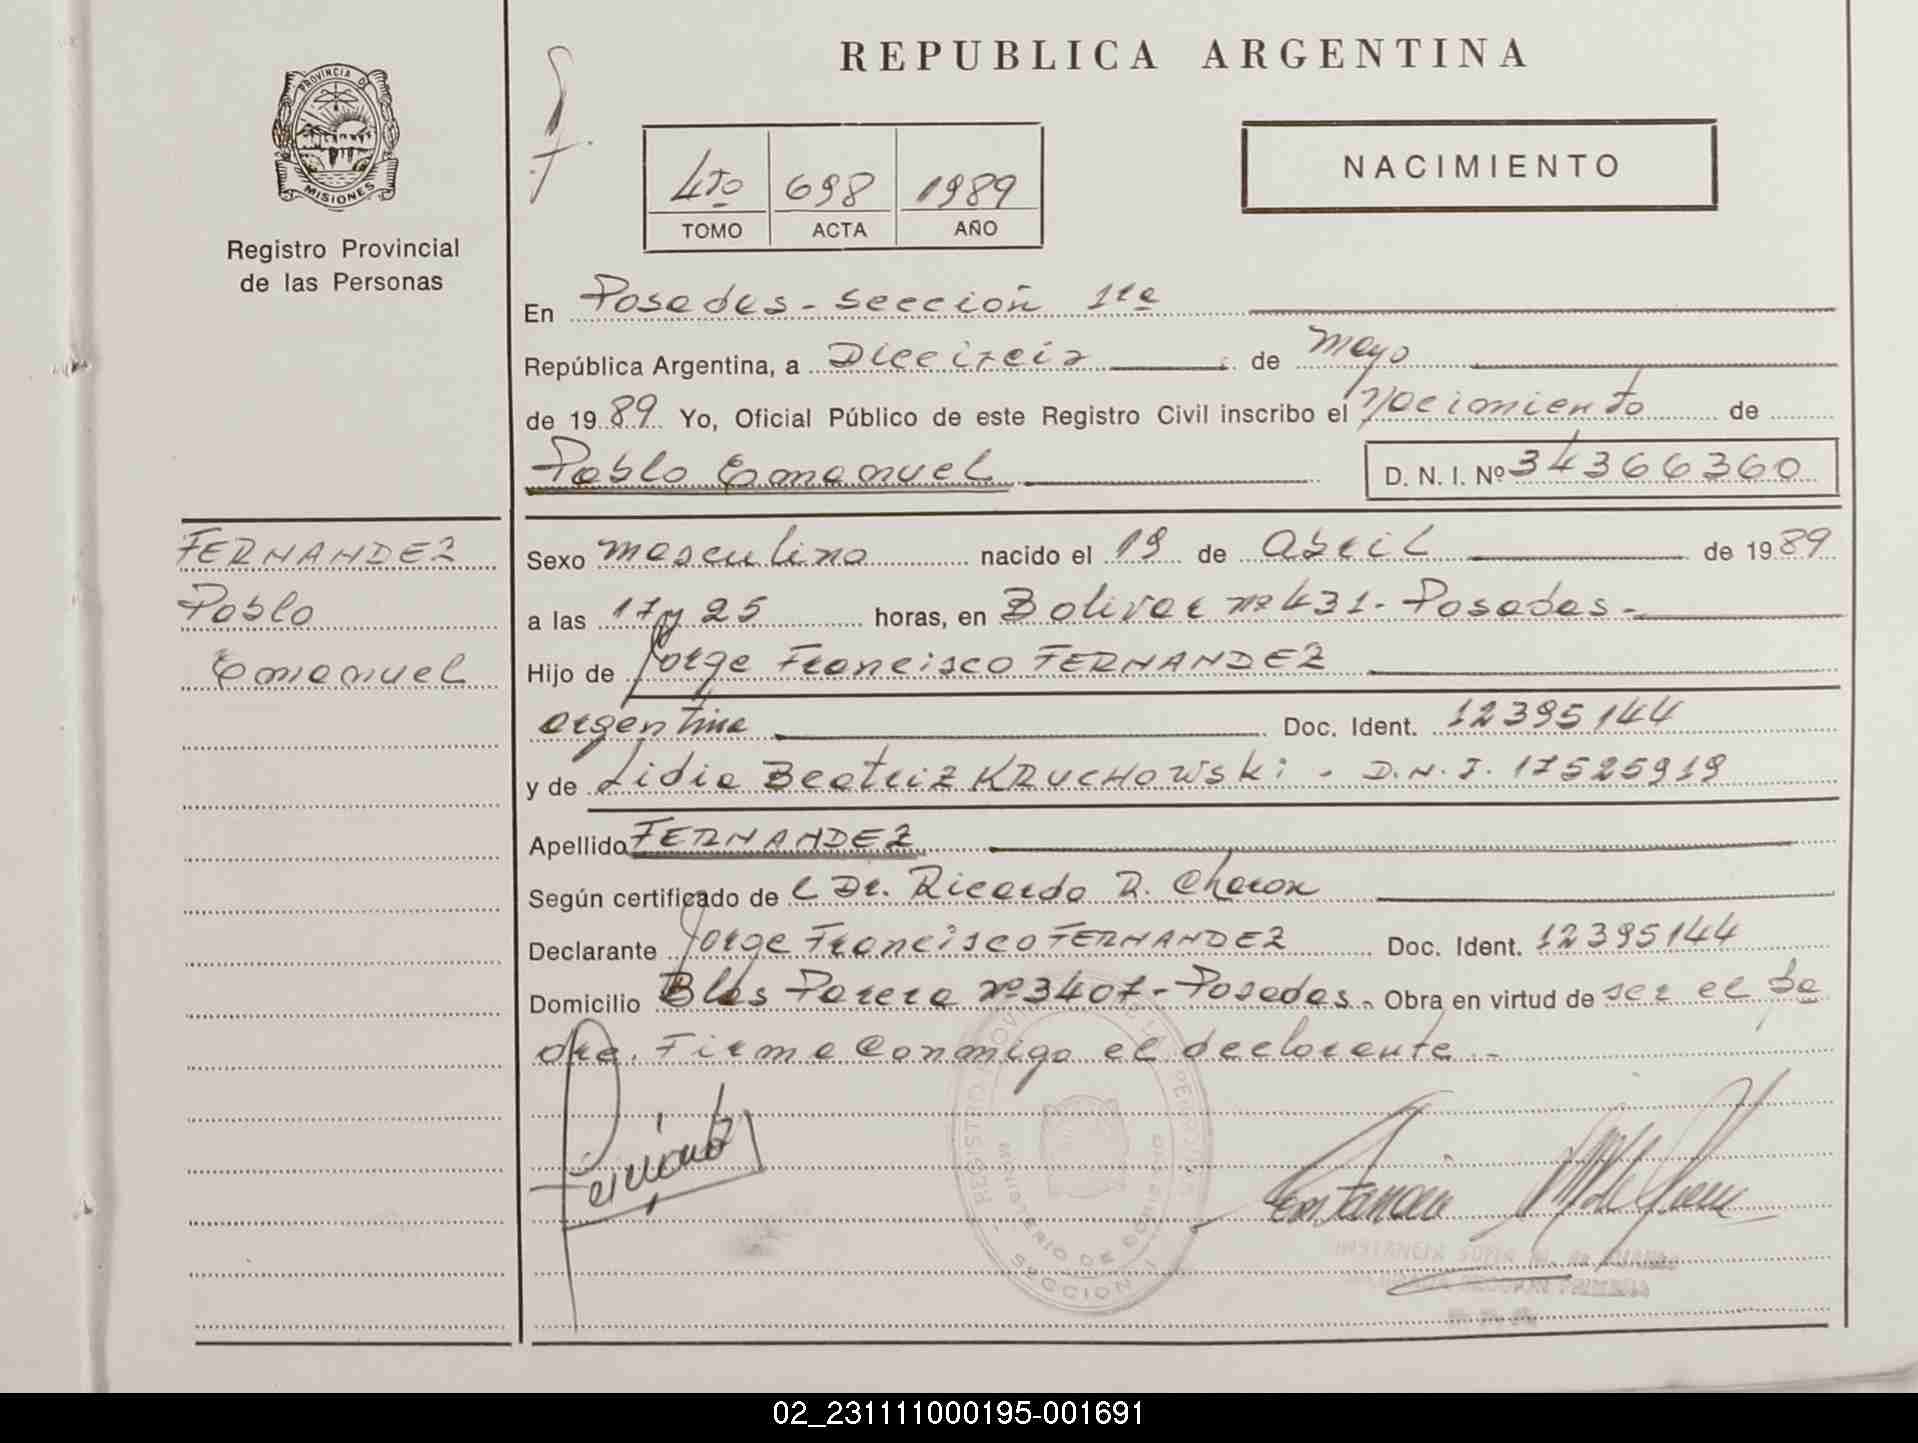 PROVINCIA DE
MISIONES
Registro Provincial
de las Personas
REPUBLICA ARGENTINA
4to 698 1989
TOMO ACTA AÑO
NACIMIENTO
En Posadas - Sección 1ra
República Argentina, a Dieciseis de Mayo
de 1989 Yo, Oficial Público de este Registro Civil inscribo el Nacimiento de
Pablo Emanuel D. N. I. Nº 34366360
FERNANDEZ
Pablo
Emanuel
Sexo masculino nacido el 19 de Abril de 1989
a las 17 y 25 horas, en Bolivar nº 431 - Posadas -
Hijo de Jorge Francisco FERNANDEZ
argentina Doc. Ident. 12395144
y de Lidia Beatriz KRUCHOWSKi - D.N.I. 17525919
Apellido FERNANDEZ
Según certificado de l Dr. Ricardo R.
Declarante Jorge Francisco FERNANDEZ Doc. Ident. 12395144
Domicilio Blas Parera nº 3407 - Posadas - Obra en virtud de ser el pa
dre. Firma conmigo el declarante -
SECCION 1
02_231111000195-001691